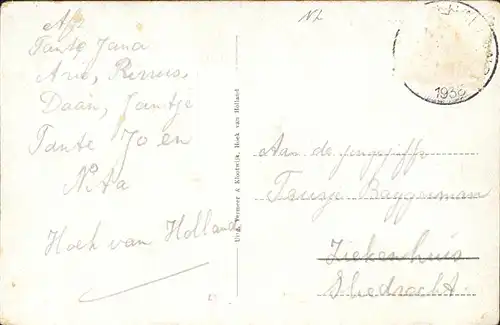 Afz.
Tante Jana
Arie, Rinus,
Daan, Jantje
Tante Jo en
Nita
Hoek van Holland
Uitg. Vermeer & Klootwijk, Hoek van Holland
NL
1938
Aan de jongejuffr.
Truusje Baggerman
Ziekenhuis
Sliedrecht.